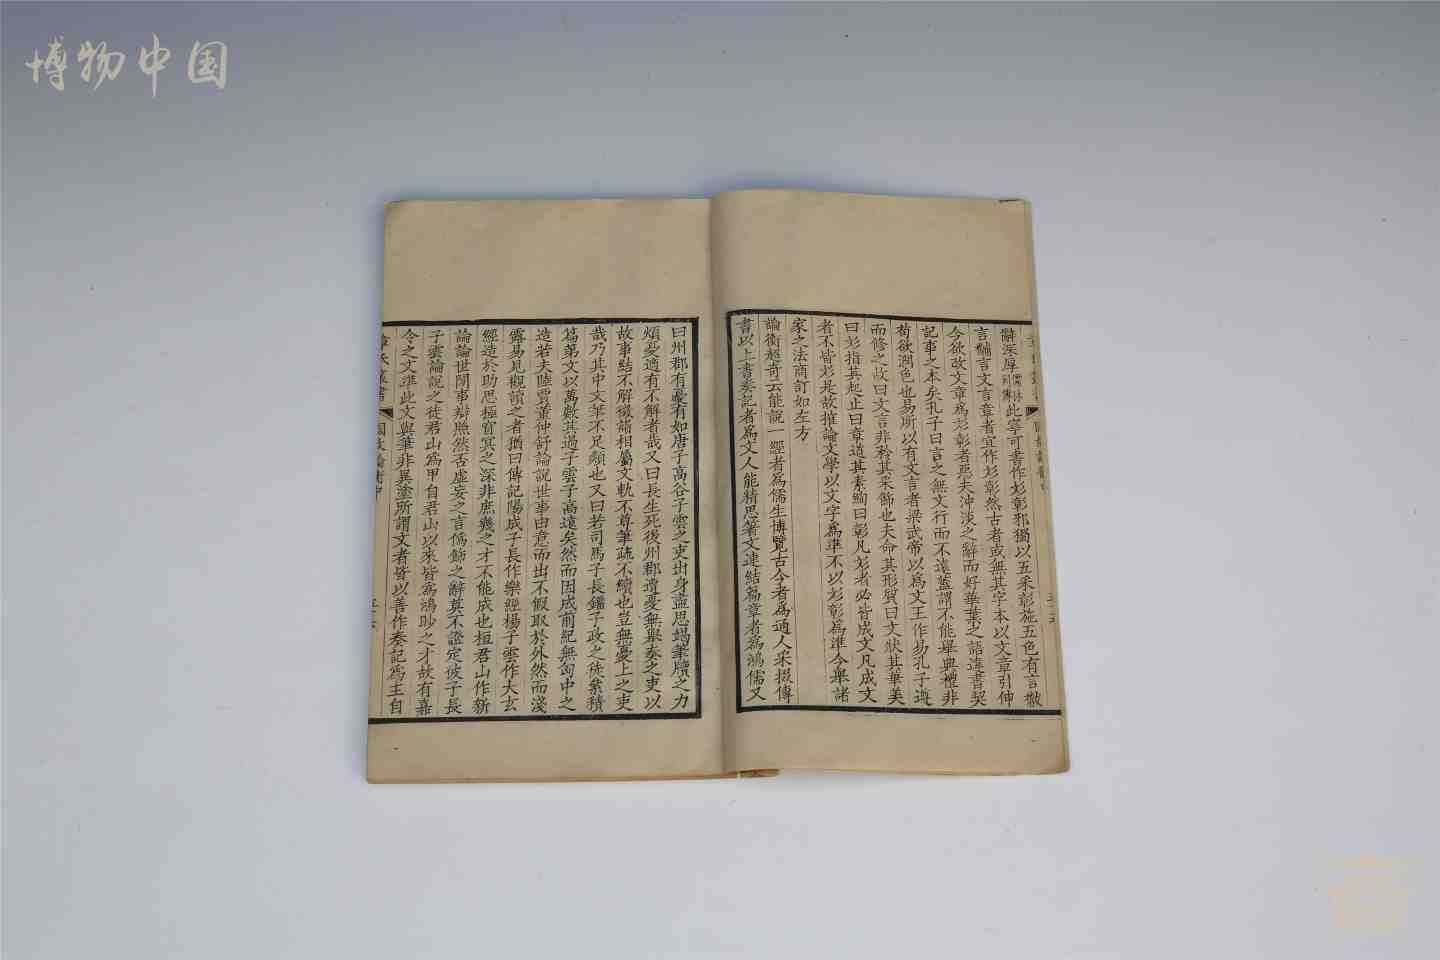 博物中国
辭深厚儒林列傳此寧可書作彣彰邪獨以五采彰施五色有言黻
言黼言文言章者宜作彣彰然古者或無其字本以文章引伸
今欲改文章爲彣彰者惡夫沖淡之辭而好華葉之語違書契
記事之本矣孔子曰言之無文行而不遠蓋謂不能舉典禮非
苟欲潤色也易所以有文言者梁武帝以爲文王作易孔子遵
而修之故曰文言非矜其采飾也夫命其形質曰文狀其華美
曰彣指其起止曰章道其素絢曰彰凡彣者必皆成文凡成文
者不皆彣是故搉論文學以文字爲準不以彣彰爲準今舉諸
家之法商訂如左方
論衡超奇云能說一經者爲儒生博覽古今者爲通人采掇傳
書以上書奏記者爲文人能精思著文連結篇章者爲鴻儒又
曰州郡有憂有如唐子高谷子雲之吏出身盡思竭筆牘之力
煩憂適有不解者哉又曰長生死後州郡遭憂無舉奏之吏以
故事結不解徵詣相屬文軌不尊筆疏不續也豈無憂上之吏
哉乃其中文筆不足類也又曰若司馬子長劉子政之徒絫積
篇第文以萬數其過子雲子高遠矣然而因成前紀無匈中之
造若夫陸賈董仲舒論說世事由意而出不假取於外然而淺
露易見觀讀之者猶曰傳記陽成子長作樂經楊子雲作大玄
經造於助思極窅冥之深非庶幾之才不能成也桓君山作新
論論世間事辯照然否虛妄之言僞飾之辭莫不證定彼子長
子雲論說之徒君山爲甲自君山以來皆爲鴻眇之才故有嘉
令之文準此文與筆非異塗所謂文者皆以善作奏記爲主自
章氏叢書 國故論衡中